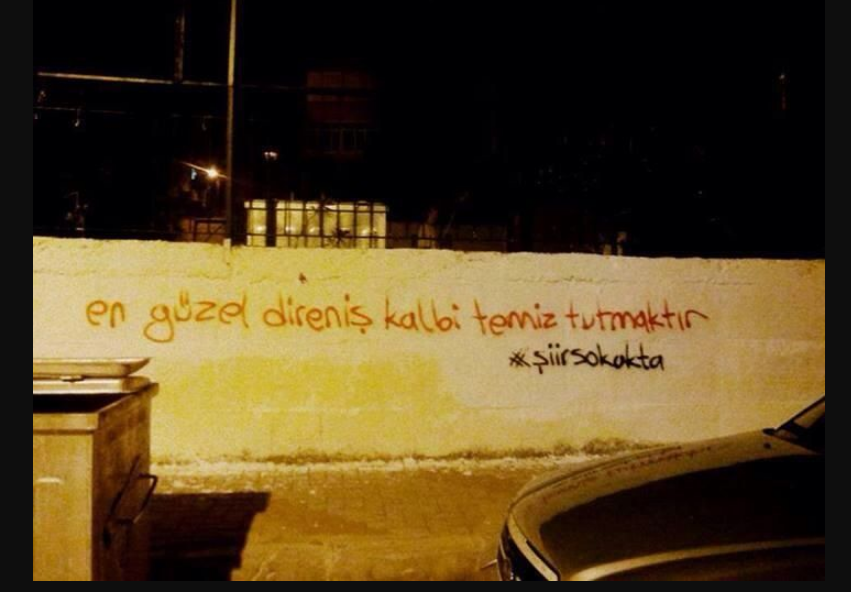 en güzel direniş kalbi temiz tutmaktır
#şiirsokakta